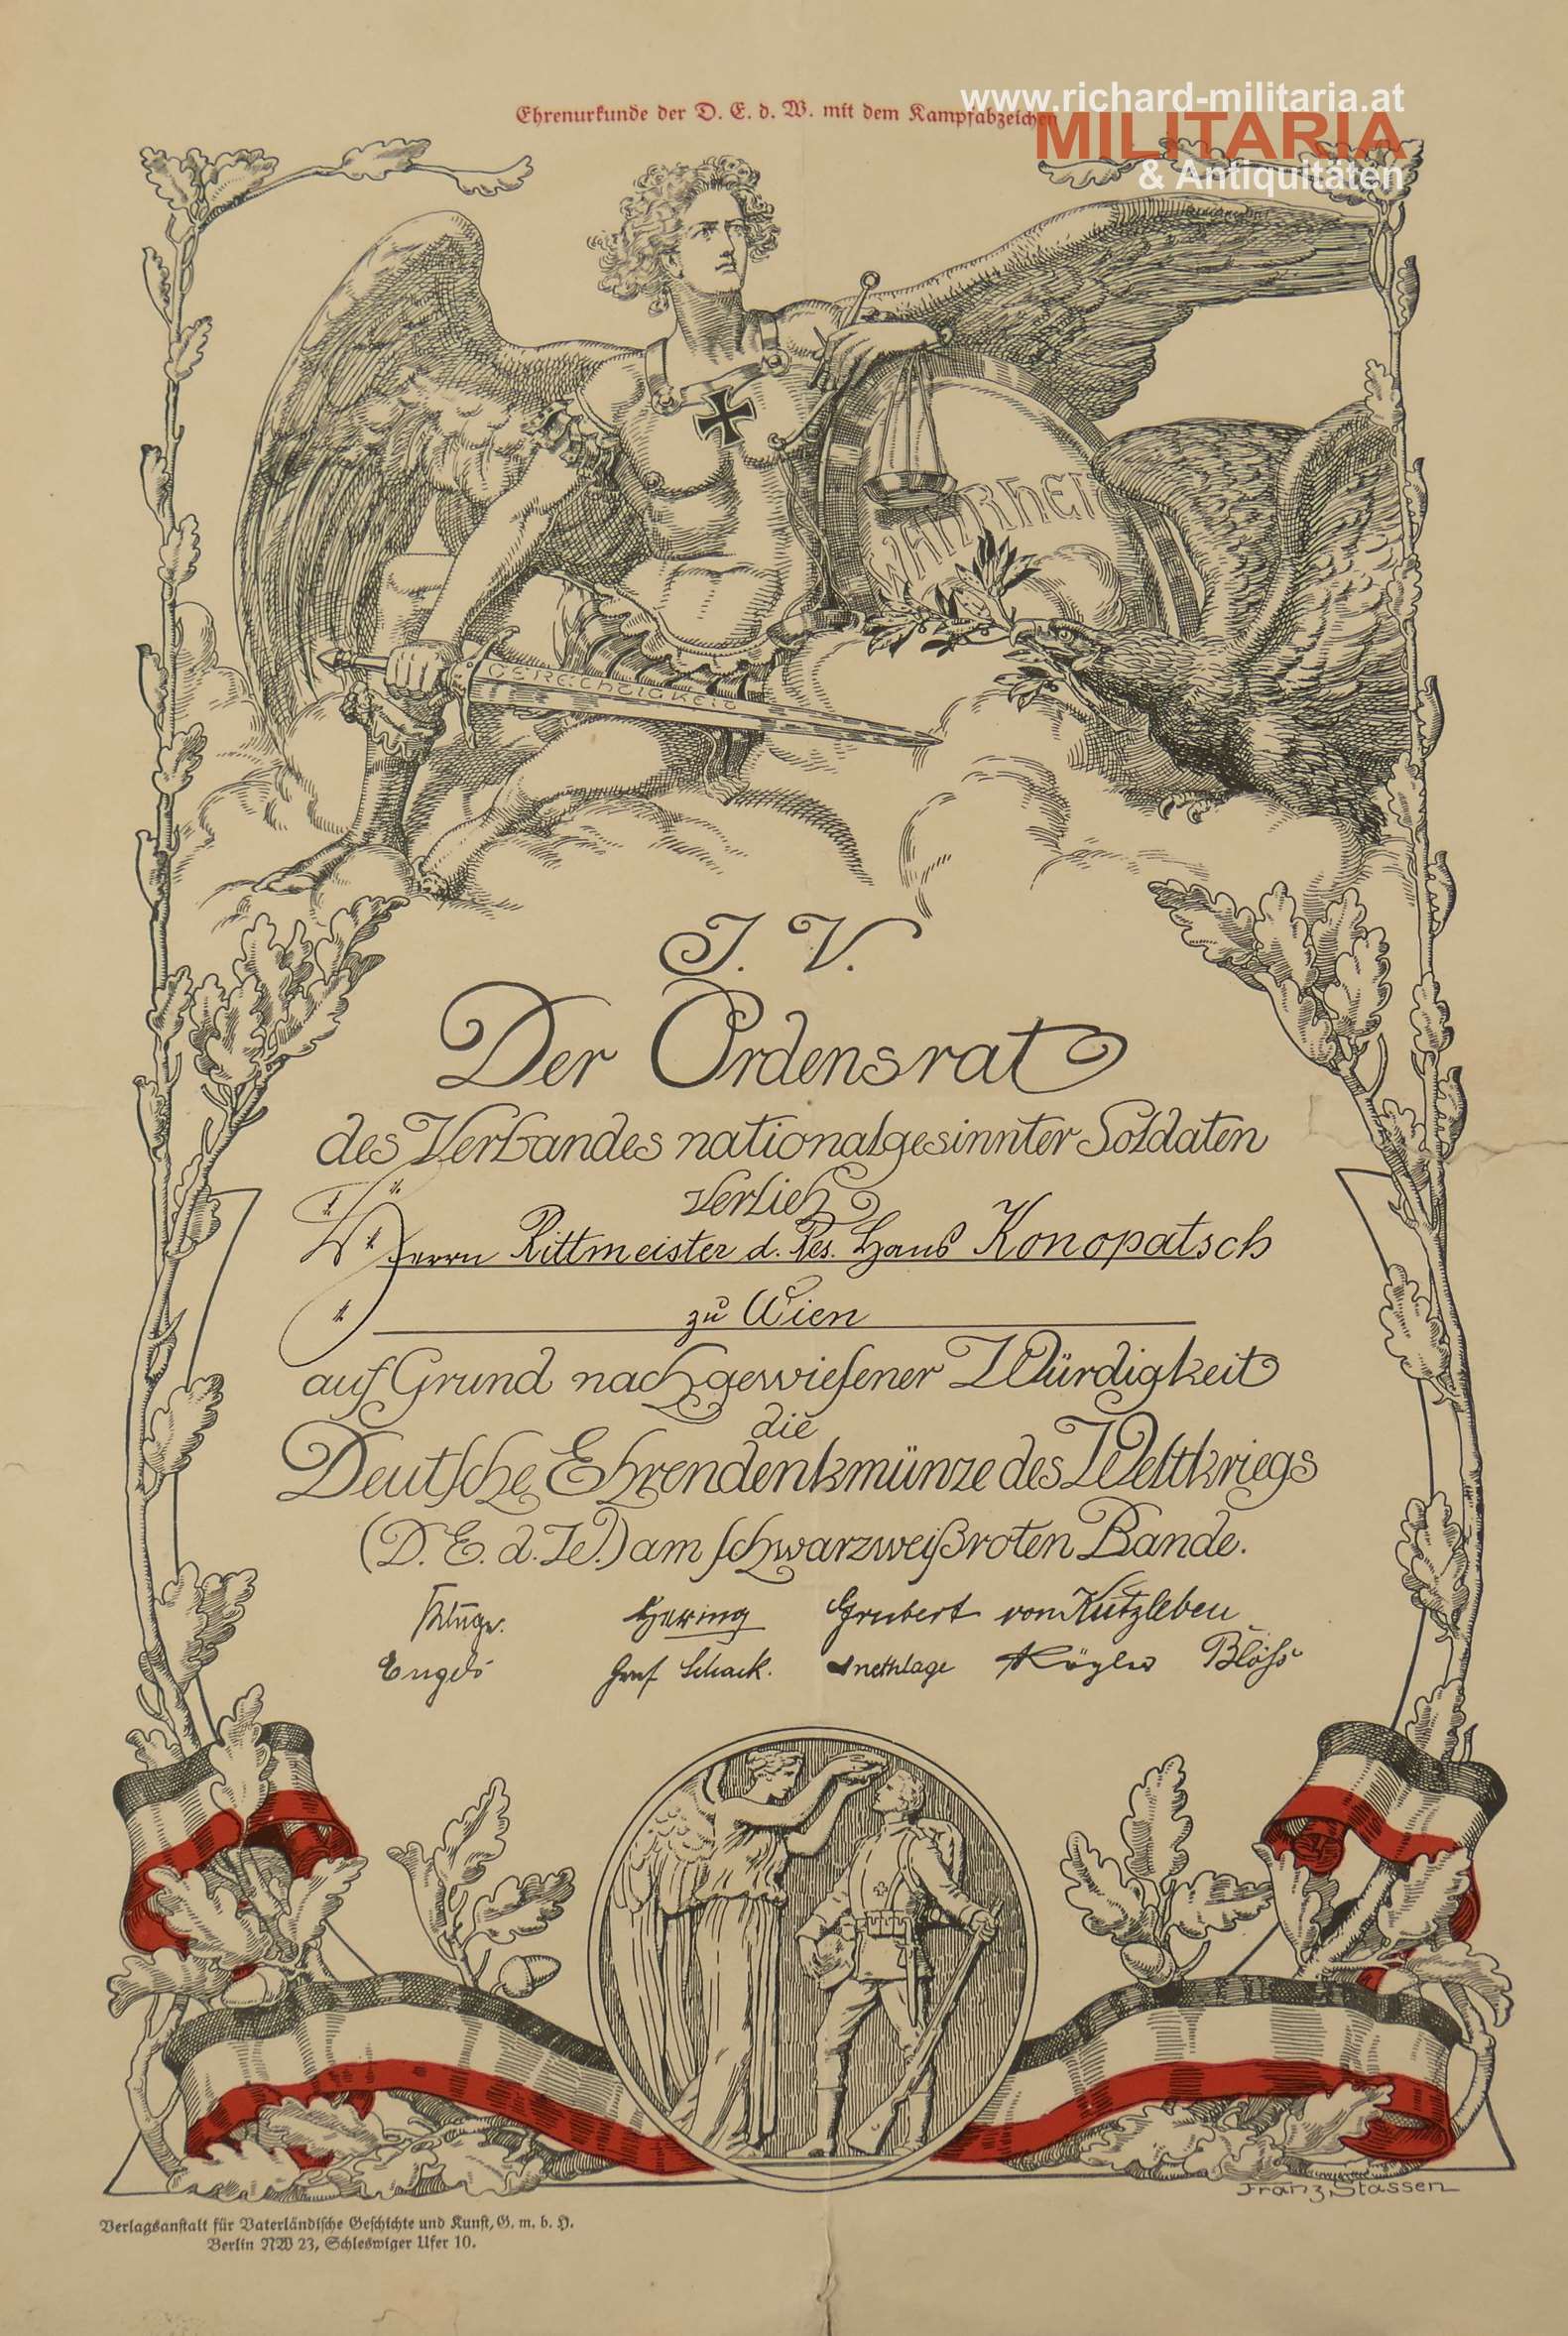 www.richard-militaria.at
MILITARIA
& Antiquitäten
Ehrenurkunde der D. E. d. W. mit dem Kampfabzeichen
WAHRHEIT
GERECHTIGKEIT
J. V.
Der Ordensrat
des Verbandes nationalgesinnter Soldaten
verlieh
Herrn Rittmeister d. Res. Hans Konopatsch
zu Wien
auf Grund nachgewiesener Würdigkeit
die
Deutsche Ehrendenkmünze des Weltkriegs
(D. E. d. W.) am schwarzweißroten Bande.
Kluge. Hering Grubert von Kutzleben
Engels Graf Schack.
Franz Stassen
Verlagsanstalt für Vaterländische Geschichte und Kunst, G. m. b. H.
Berlin NW 23, Schleswiger Ufer 10.